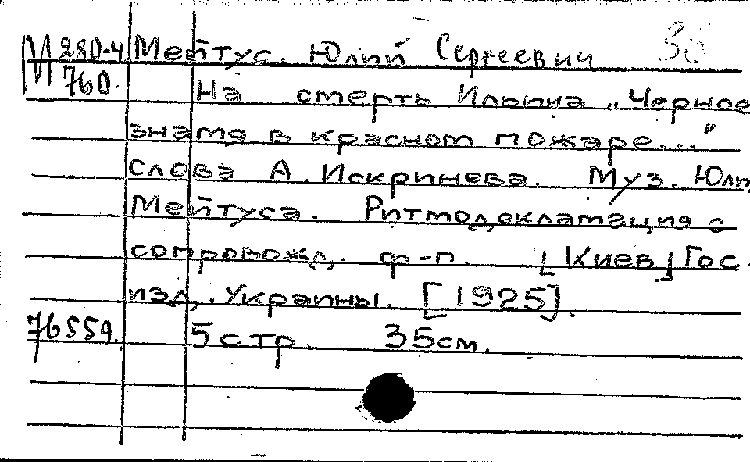 М 280-4 Мейтус. Юлий Сергеевич 35
М 760. На смерть Ильича „Черное
знамя в красном пожаре..."
Слова А. Искринева. Муз. Юлия
Мейтуса. Ритмодекламация с
сопровожд. ф-п. [Киев] Гос.
изд. Украины. [1925].
76559. 5 стр. 35см.